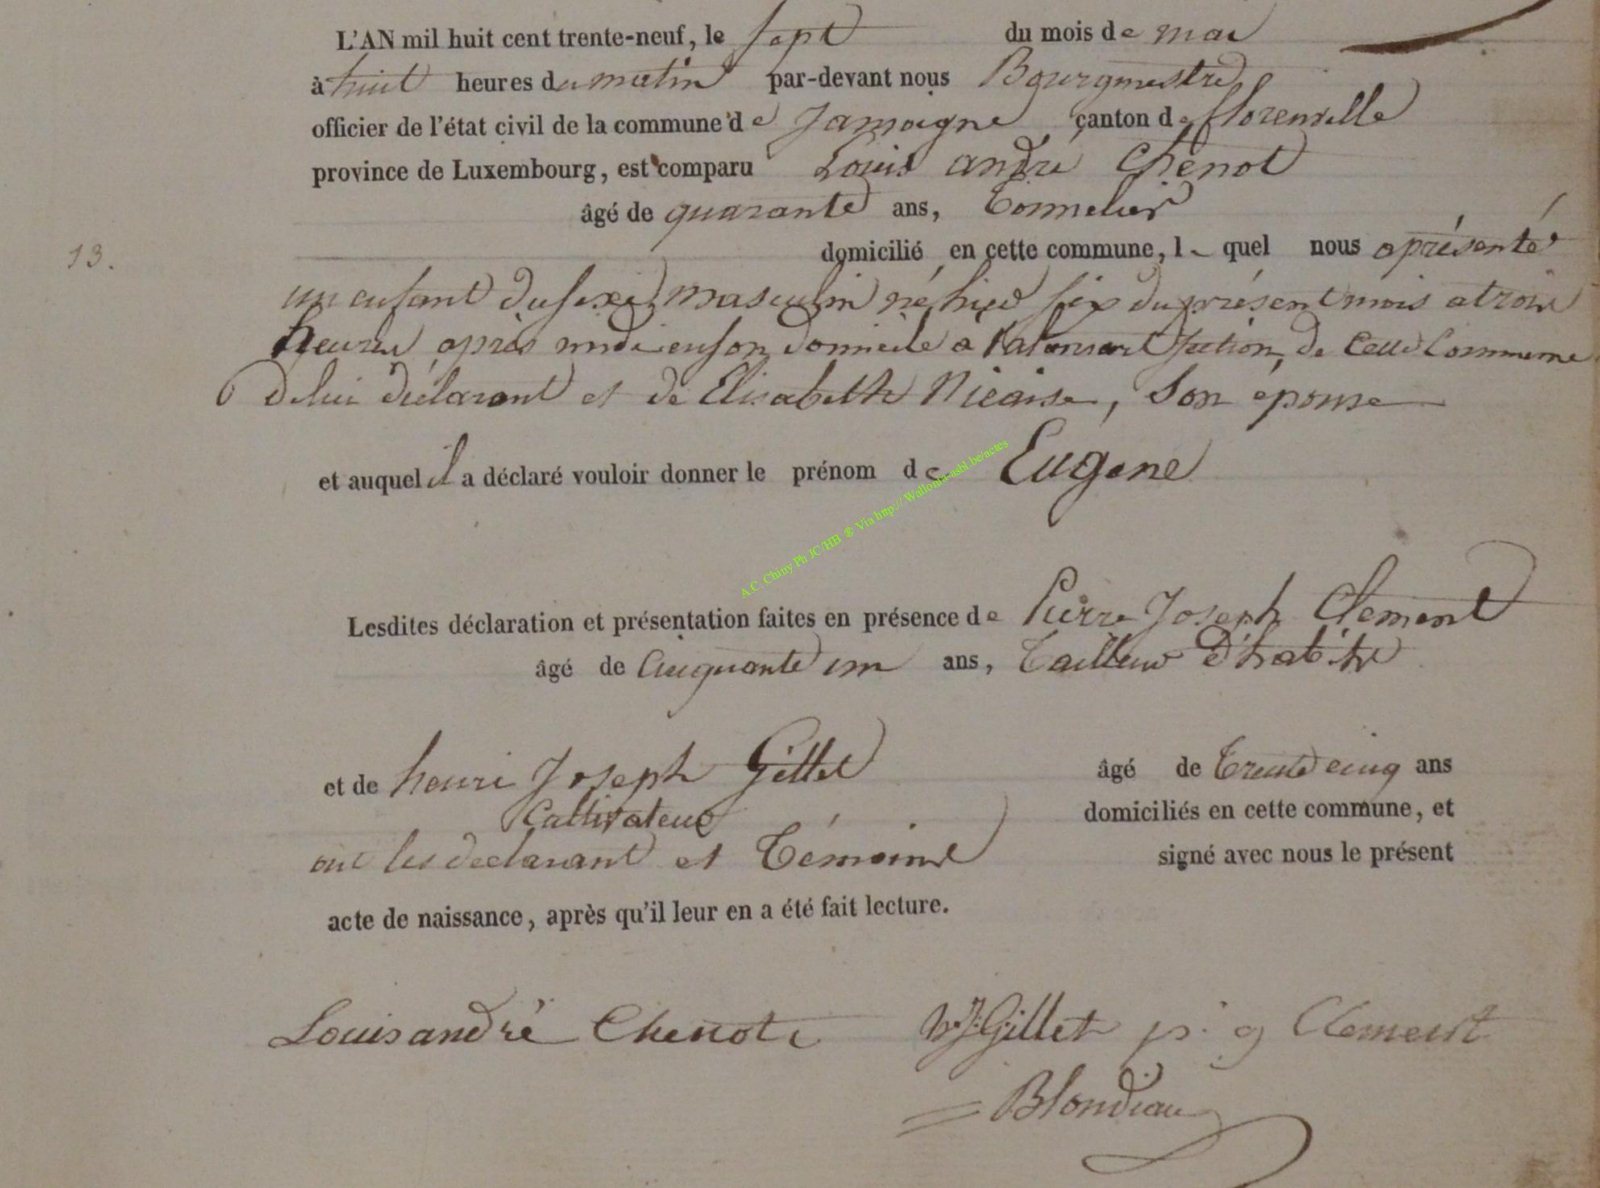 L'AN mil huit cent trente-neuf, le sept du mois de mai
à huit heures du matin par-devant nous Bourgmestre
officier de l'état civil de la commune de Jamoigne canton de florenville
province de Luxembourg, est comparu Louis andré Chenot
âgé de quarante ans, Tonnelier
13. domicilié en cette commune, le quel nous a présenté
un enfant du sexe masculin né hier six du présent mois a trois
heures après midi en son domicile a Valansart section de cette Commune
de lui déclarant et de Elisabeth Nicaise, son épouse
et auquel il a déclaré vouloir donner le prénom de Eugene
A.C. Chiny Ph JC/HB ® Via http://Wallonia-asbl.be/actes
Lesdites déclaration et présentation faites en présence de Pierre Joseph Clement
âgé de Cinquante un ans, Tailleur d'habits
et de henri Joseph Gillet âgé de Trente cinq ans
Cultivateur domiciliés en cette commune, et
ont les declarant et Témoins signé avec nous le présent
acte de naissance, après qu'il leur en a été fait lecture.
Louis andrè Chenot h.J. Gillet p. j Clement
Blondiau